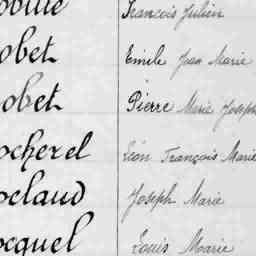 François Julien
obet Emile Jean Marie
obet Pierre Marie Joseph
ocherel Léon François Marie
oclaud Joseph Marie
ocquel Louis Marie